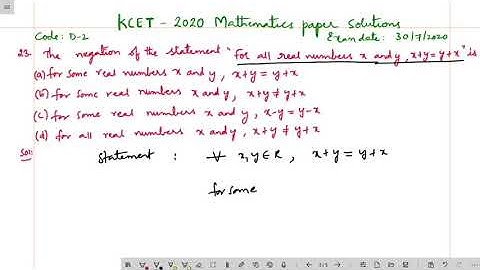 KCET - 2020 Mathematics paper solutions
Code: D-2 Exam date: 30/7/2020
23. The negation of the statement "for all real numbers x and y, x+y = y+x" is
(a) for some real numbers x and y, x+y = y+x
(b) for some real numbers x and y, x+y ≠ y+x
(c) for some real numbers x and y, x-y = y-x
(d) for all real numbers x and y, x+y ≠ y+x
Sol: Statement : ∀ x,y ∈ R, x+y = y+x
for some